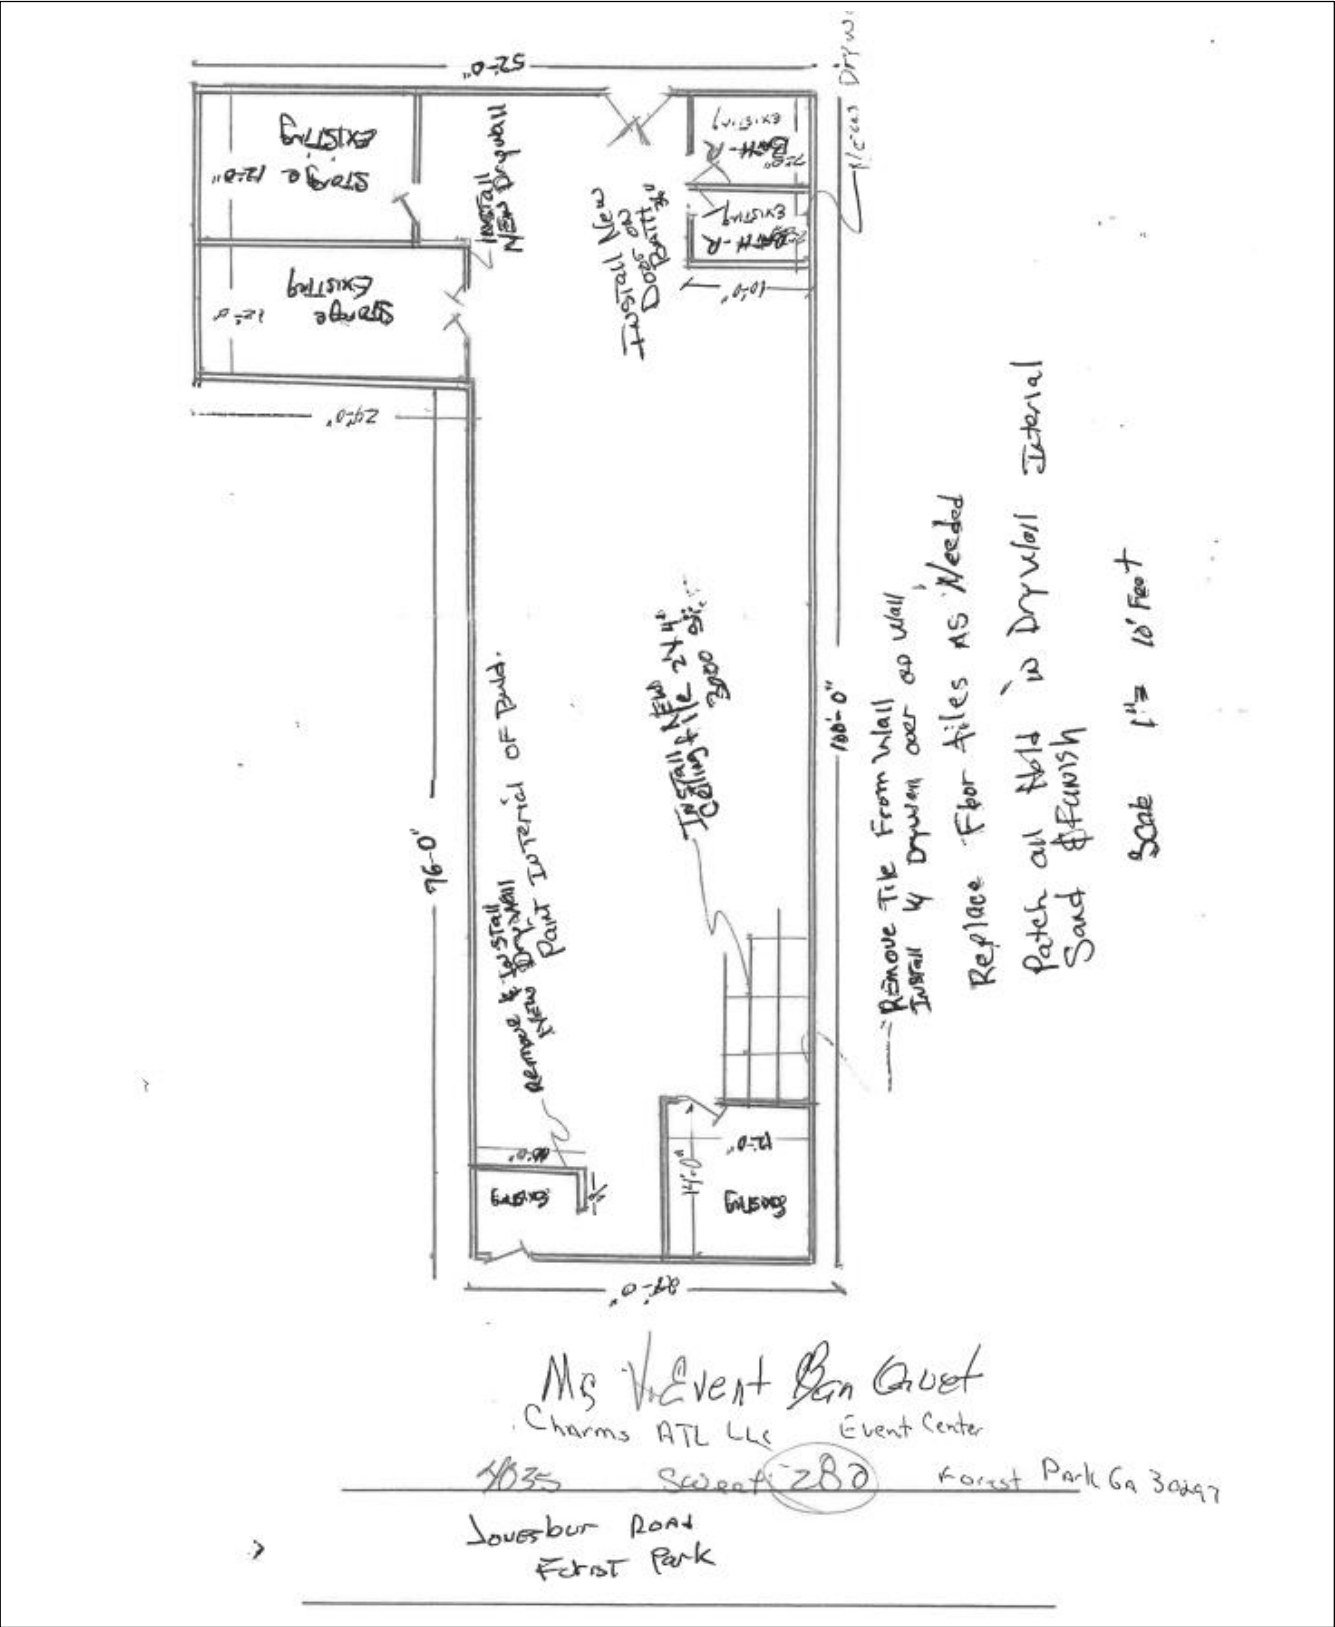 52'-0"
EXISTING
STORGE
12'-0"
EXISTING
STORGE
12'-0"
INSTALL
NEW DryWall
INSTALL New
EXISTING
BATH-R
7'-0"
EXISTING
BATH-R
10'-0"
24'-0"
76'-0"
100'-0"
REMOVE & INSTALL
NEW DryWall
PAINT INTERIOR OF Build.
INSTALL NEW
Ceiling tile 2x4
3000
REMOVE TILE From Wall
INSTALL Drywall over Wall
Replace Floor tiles AS Needed
Patch all in DryWall
Sand &
Scale 1"= 10' Feet
EXISTING
14'-0"
12'-0"
EXISTING
Ms V. Event Ban Quet
Charms ATL LLC Event Center
4035 280 Forest Park GA 30297
ROAD
Park